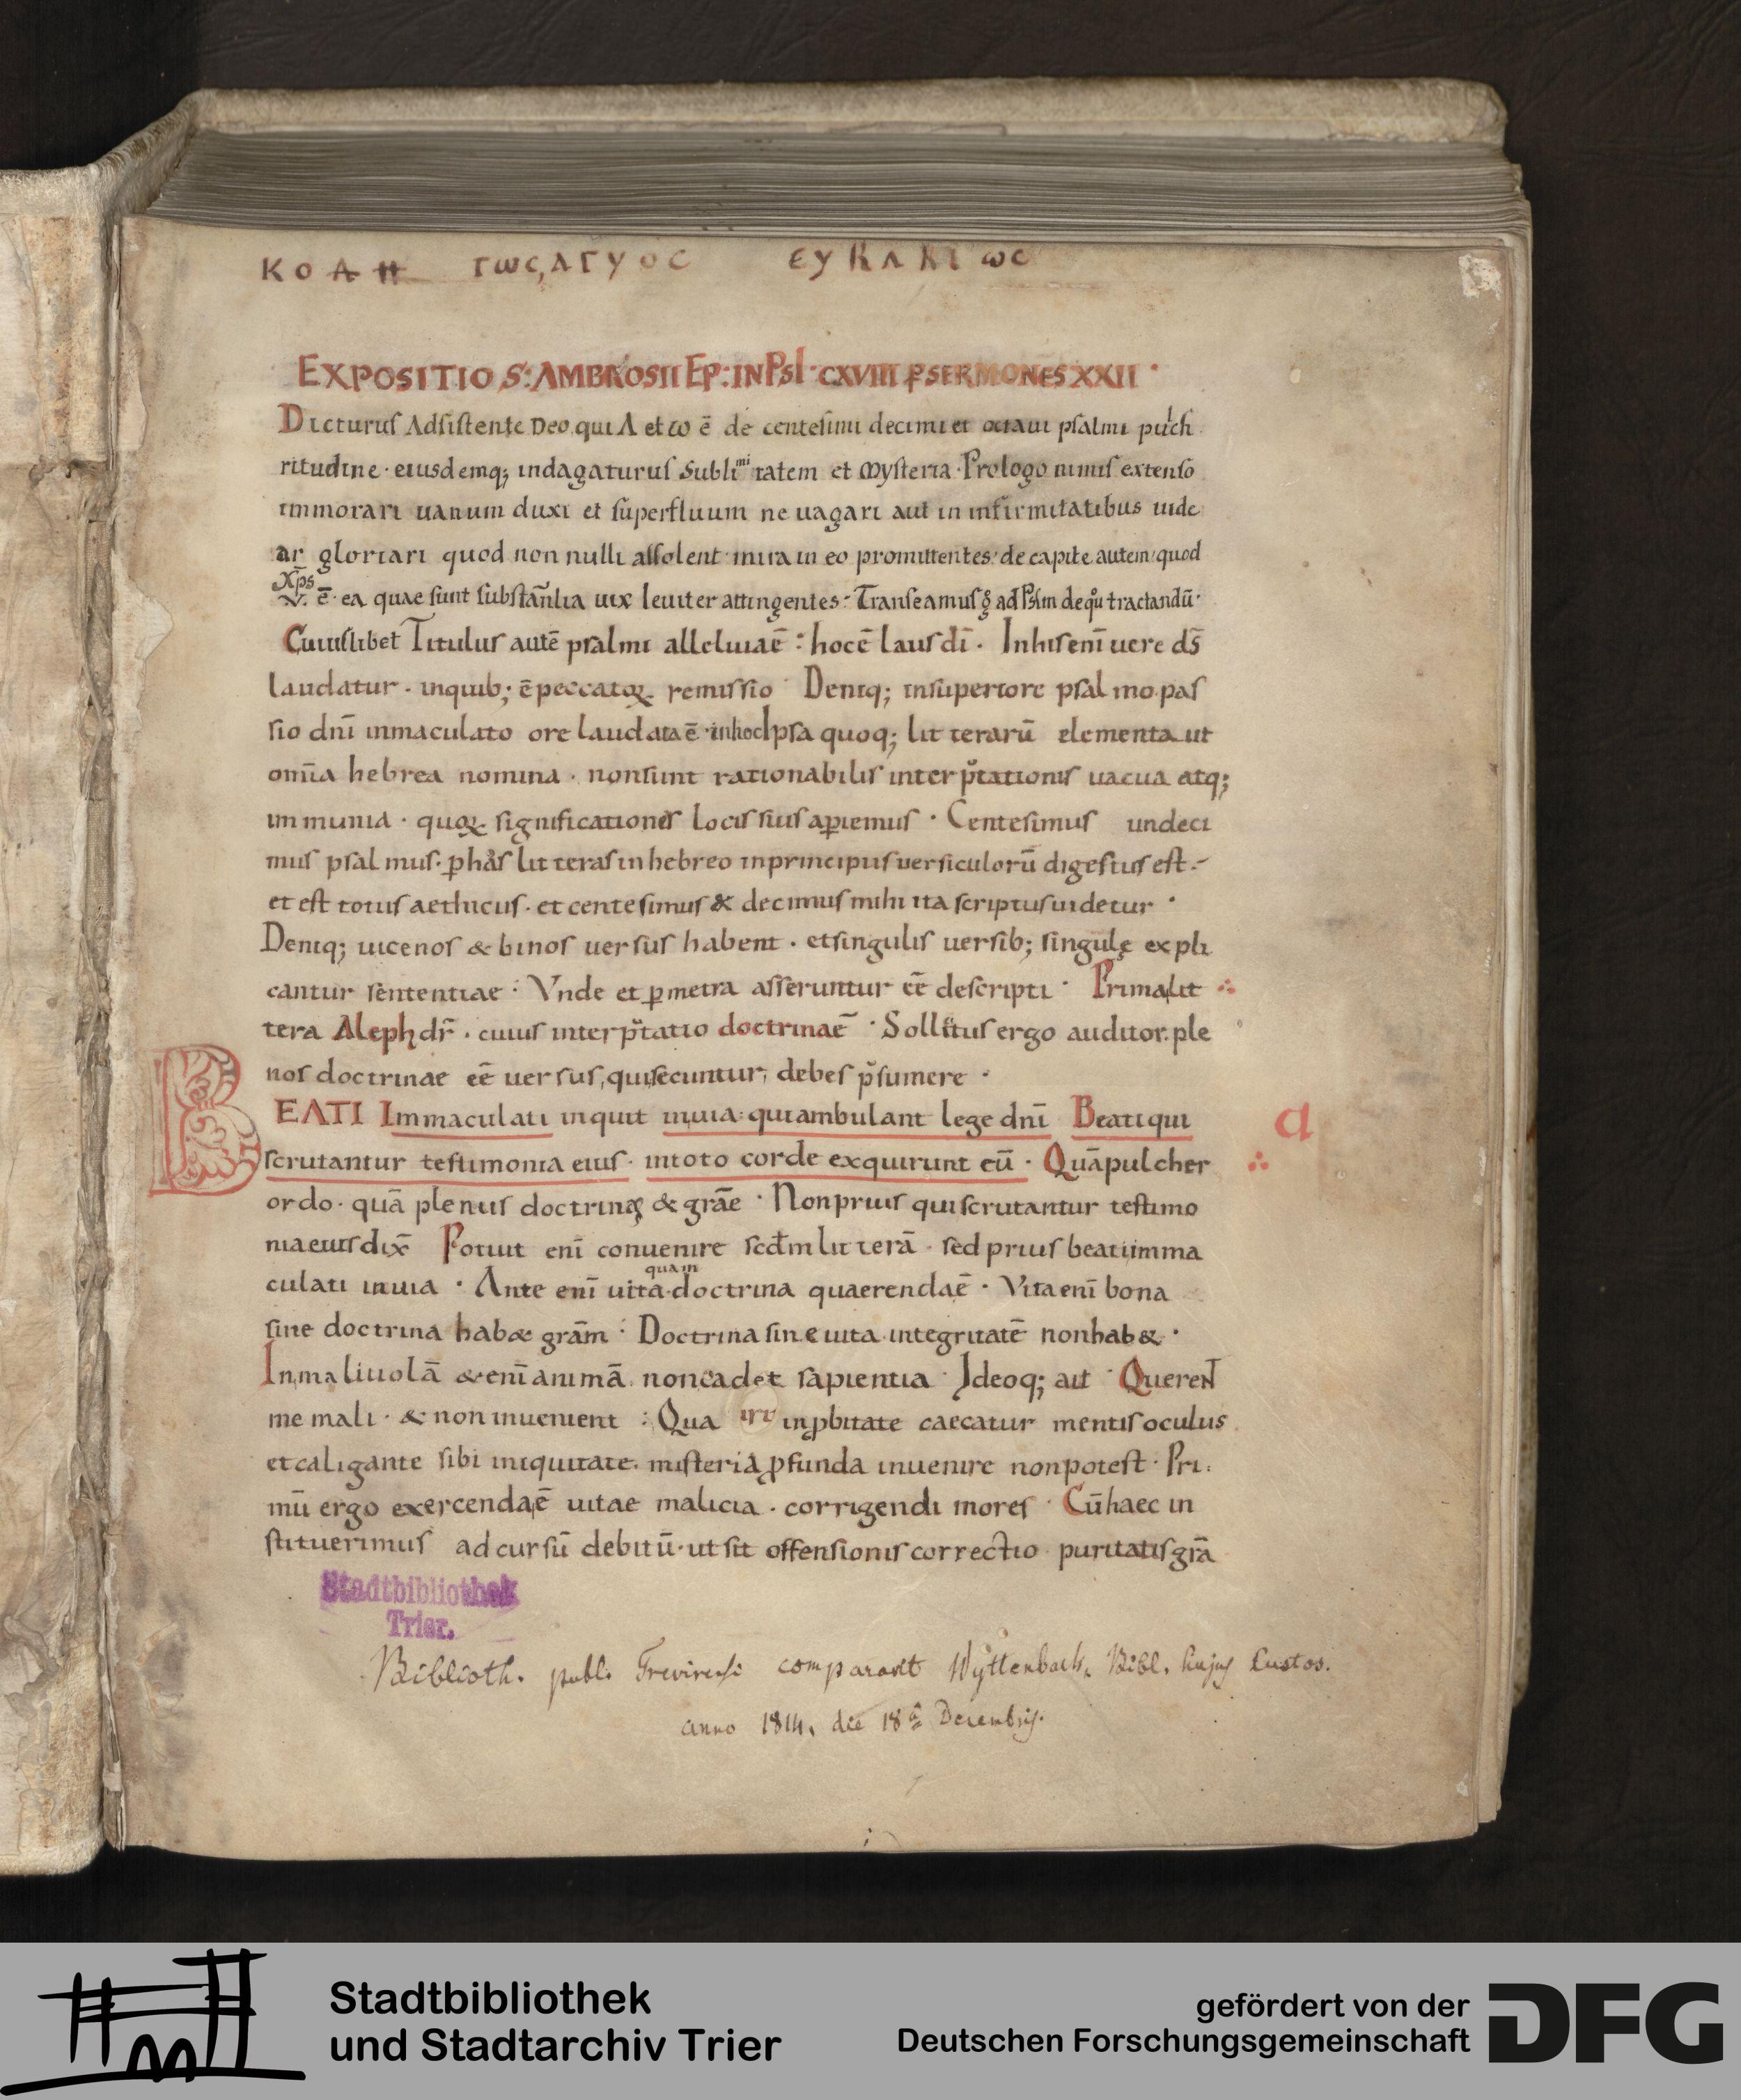 ΚΟΛΗ ΓωC,ΑΓΥΟC ЄΥΚΛΚΙωC
EXPOSITIO S: AMBROSII EP: IN PSl· CXVIII P SERMONES XXII ·
Dicturus Adsistente Deo qui Λ et ω ē de centesimi decimi et octaui psalmi pulch
ritudine · eiusdemq; indagaturus sublimitatem et mysteria · Prologo nimis extenso
immorari uanum duxi et superfluum ne uagari aut in infirmitatibus uide
ar gloriari quod non nulli assolent mira in eo promittentes · de capite autem quod
xp̄s
ē · ea quae sunt substan̄tia uix leuiter attingentes · Transeamus g° ad Psm de quo tractandū ·
Cuiuslibet Titulus autē psalmi alleluia ē : hoc ē laus dī · In his enī uere ds̄
laudatur · in quib; ē peccatoꝝ remissio · Deniq; in superiore psalmo pas
sio dnī inmaculato ore laudata ē · in hoc Ipsa quoq; litterarū elementa ut
omīa hebrea nomina · non sunt rationabilis interp̄tationis uacua atq;
immunia · quoꝝ significationes locis suis apiemus · Centesimus undeci
mus psalmus · p has litteras in hebreo in principiis uersiculorū digestus est ·
et est totus aethicus · et centesimus & decimus mihi ita scriptus uidetur ·
Deniq; uicenos & binos uersus habent · et singulis uersib; singulę expli
cantur sententiae · Vnde et ꝑ metra asseruntur eē descripti · Prima lit
tera Aleph dr̄ · cuius interp̄tatio doctrina ē · Sollicitus ergo auditor ple
nos doctrinae eē uersus, qui secuntur, debes p̄sumere ·
BEATI Immaculati inquit in uia · qui ambulant lege dnī Beati qui
a
scrutantur testimonia eius · in toto corde exquirunt eū · Quā pulcher
ordo · quā plenus doctrinę & grāe · Non prius qui scrutantur testimo
nia eius dix̄ Potuit enī conuenire scd̄m litterā · sed prius beati imma
quam
culati in uia · Ante enī uita doctrina quaerenda ē · Vita enī bona
sine doctrina hab& grām · Doctrina sine uita integritatē non hab& ·
In maliuolā & enī animā non cadet sapientia · Ideoq; ait · QuerenT
me mali · & non inuenient : Qua inꝓbitate caecatur mentis oculus
et caligante sibi iniquitate · misteria ꝓfunda inuenire non potest · Pri
mū ergo exercenda ē uitae malicia · corrigendi mores · Cū haec in
stituerimus ad cursū debitū · ut sit offensionis correctio puritatis grā
Stadtbibliothek
Trier.
Biblioth. publ. Trevirensi comparavit Wyttenbach, Bibl. hujus Custos.
anno 1814, die 18ª Decembris.
Stadtbibliothek
und Stadtarchiv Trier
gefördert von der
Deutschen Forschungsgemeinschaft
DFG